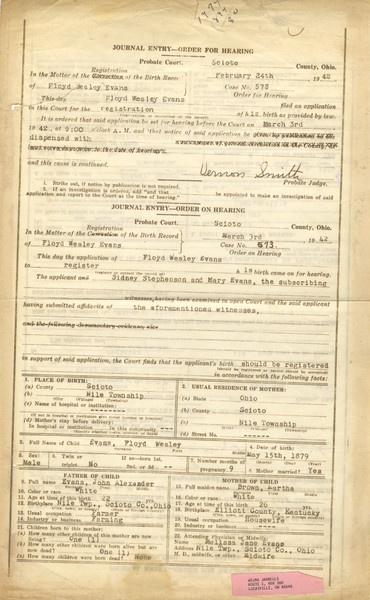 JOURNAL ENTRY—ORDER FOR HEARING
Probate Court, Scioto County, Ohio.
In the Matter of the Registration of the Birth Record February 24th 1942
of Floyd Wesley Evans Case No. 573
Order for Hearing
This day Floyd Wesley Evans filed an application
in this Court for the registration of his birth as provided by law.
It is ordered that said application be set for hearing before the Court on March 3rd
1942, at 9:00 o'clock A. M. and that notice of said application be
dispensed with
and this cause is continued.
Vernon Smith
Probate Judge.
1. Strike out, if notice by publication is not required.
2. If an investigation is ordered, add "and that
be appointed to make an investigation of said
application and report to the Court at the time of hearing."
JOURNAL ENTRY—ORDER ON HEARING
Probate Court, Scioto County, Ohio.
In the Matter of the Registration of the Birth Record March 3rd 1942
of Floyd Wesley Evans Case No. 573.
This day the application of Floyd Wesley Evans
to register his birth came on for hearing.
The applicant and Sidney Stephenson and Mary Evans, the subscribing
witnesses, having been examined in open Court and the said applicant
having submitted affidavits of the aforementioned witnesses,
and the following documentary evidence, viz:
in support of said application, the Court finds that the applicant's birth should be registered
in accordance with the following facts:
1. PLACE OF BIRTH:
(a) County Scioto
(b) Nile Township
(c) Name of hospital or institution:
(d) Mother's stay before delivery:
In hospital or institution In this community
2. USUAL RESIDENCE OF MOTHER:
(a) State Ohio
(b) County Scioto
(c) Nile Township
(d) Street No.
3. Full Name of Child Evans, Floyd Wesley
4. Date of birth: May 15th, 1879
5. Sex: Male
6. Twin or triplet No If so—born 1st, 2nd, or 3d
7. Number months of pregnancy 9
8. Is mother married? Yes
FATHER OF CHILD
9. Full name Evans, John Alexander
10. Color or race White
11. Age at time of this birth 22 yrs.
12. Birthplace Nile Twp., Scioto Co., Ohio
13. Usual occupation Farmer
14. Industry or business Farming
MOTHER OF CHILD
15. Full maiden name Brown, Martha
16. Color or race White
17. Age at time of this birth 26 yrs.
18. Birthplace Elliott County, Kentucky
19. Usual occupation Housewife
20. Industry or business
21. Children born to this mother:
(a) How many other children of this mother are now living? One (1)
(b) How many other children were born alive but are now dead? One (1)
(c) How many children were born dead? None
22. Attending Physician or Midwife:
Melissa Jane Evans
Address Nile Twp., Scioto Co., Ohio
M. D., midwife, or other Midwife
WILMA JARRELLS
ROUTE 1, BOX 800
LUCASVILLE, OH 45648